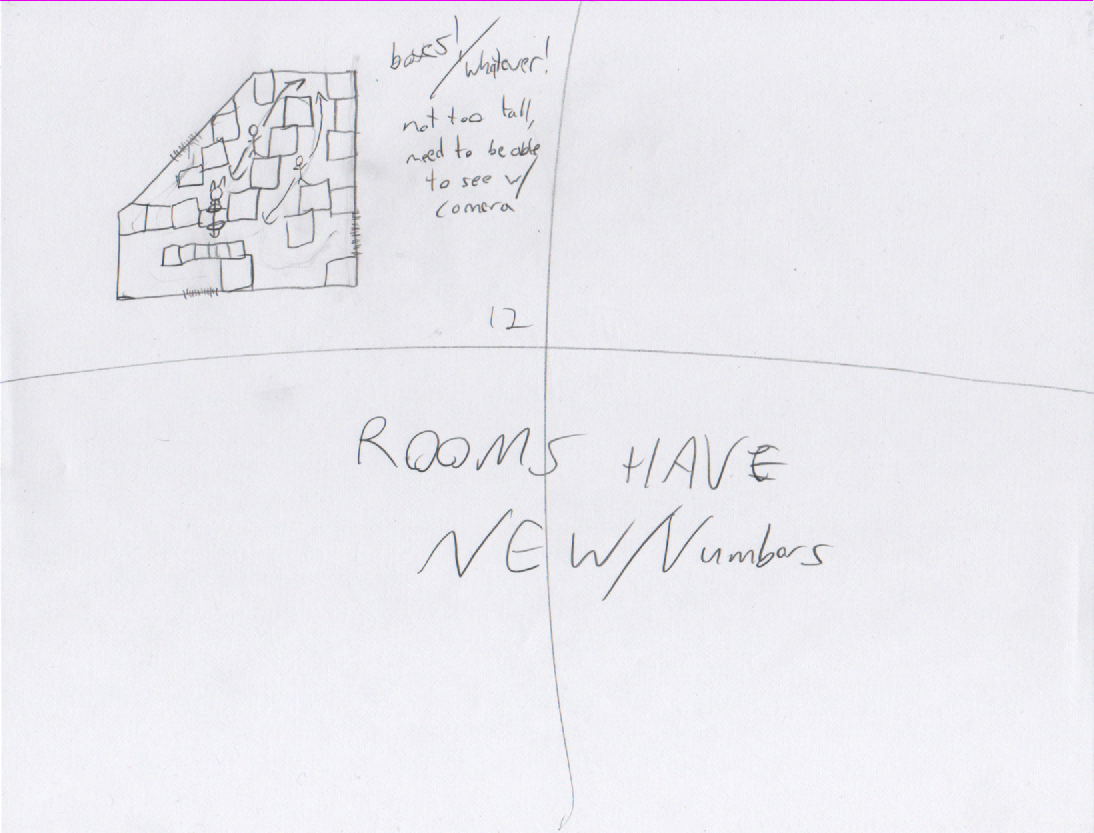 boxes!/whatever!
not too tall,
need to be able
to see w/
camera
12
ROOMS HAVE
NEW/Numbers